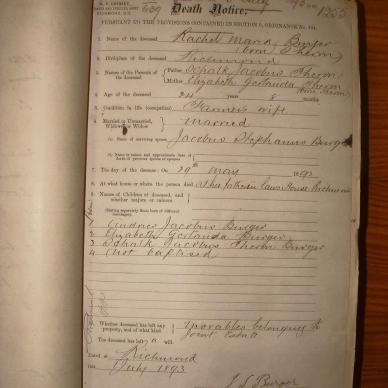 Death Notice.
PURSUANT TO THE PROVISIONS CONTAINED IN SECTION 9, ORDINANCE No. 104.
1. Name of the deceased Rachel Maria Burger
(born Theron)
2. Birthplace of the deceased Richmond
3. Names of the Parents of the deceased Father Schalk Jacobus Theron
Mother Elizabeth Gertruida Theron
4. Age of the deceased 24 years 8 months
5. Condition in life (occupation) Farmer's wife
6. Married or Unmarried, Widower or Widow married
(a) Name of surviving spouse Jacobus Stephanus Burger
(b) Name or names and approximate date of death of previous spouse or spouses
7. The day of the decease: On 29th May 1893
8. At what house or where the person died At her Father in Laws House Richmond
9. Names of Children of deceased, and whether majors or minors
(Stating separately those born of different marriages)
1 Jacobus Burger
2 Elizabeth Burger
3 Schalk Jacobus Theron Burger
4 Not baptised
Whether deceased has left any property, and of what kind Movables belonging to
Joint Estate
The deceased has left a will
Dated at Richmond
July 1893
J S Burger